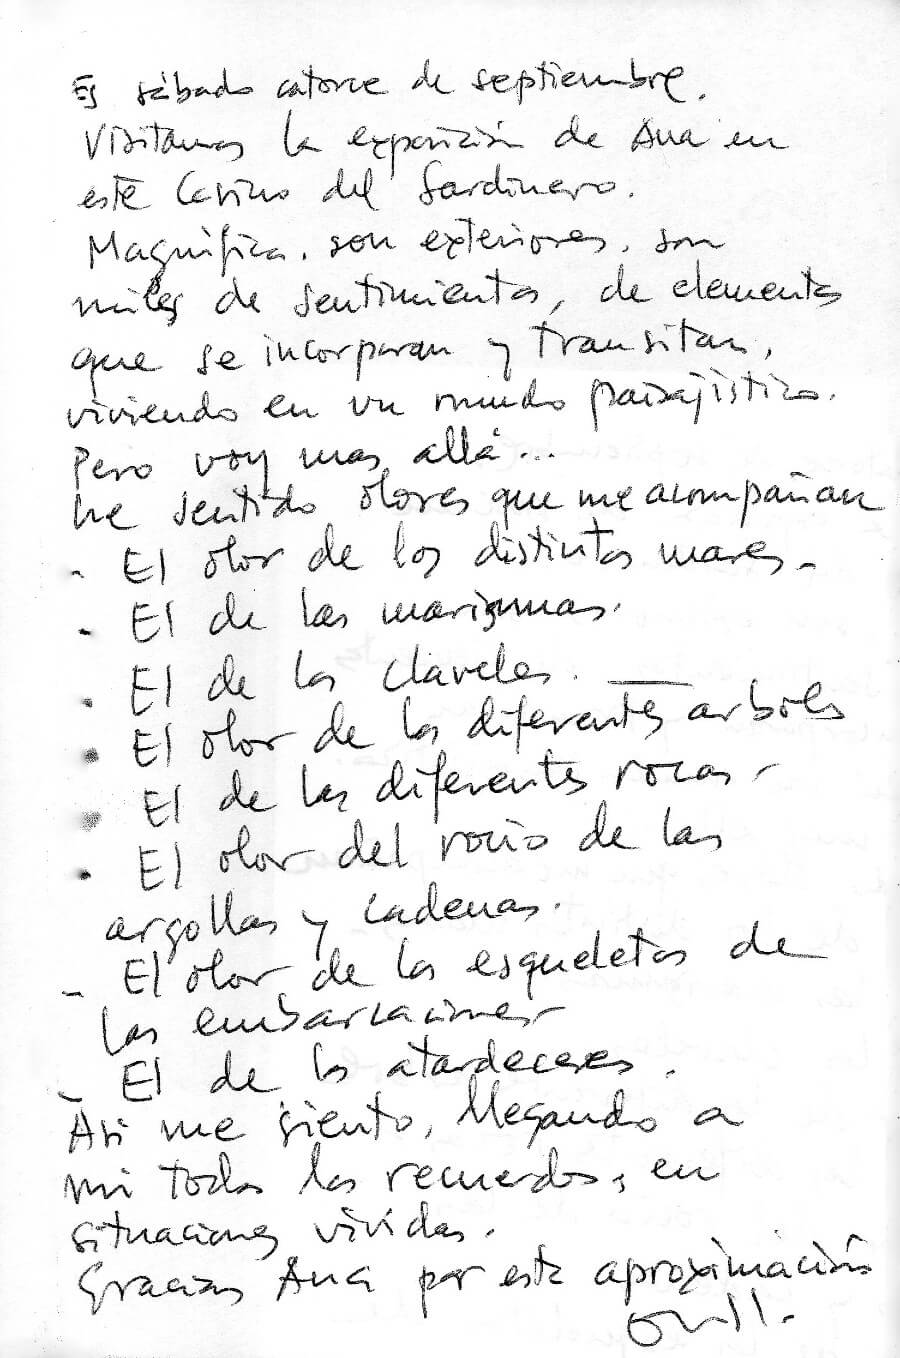 Es sábado catorce de septiembre.
Visitamos la exposición de Ana en
este Casino del Sardinero.
Magnífica. son exteriores. son
miles de sentimientos, de elementos
que se incorporan y transitan,
viviendo en un mundo paisajístico.
Pero voy mas allá...
he sentido olores que me acompañan
- El olor de los distintos mares -
- El de las marismas.
. El de los claveles. —
. El olor de los diferentes arboles
. El de las diferentes rocas -
. El olor del rocío de las
argollas y cadenas.
- El olor de los esqueletos de
las embarcaciones -
- El de los atardeceres.
Asi me siento, llegando a
mi todos los recuerdos, en
situaciones vividas.
Gracias Ana por esta aproximación